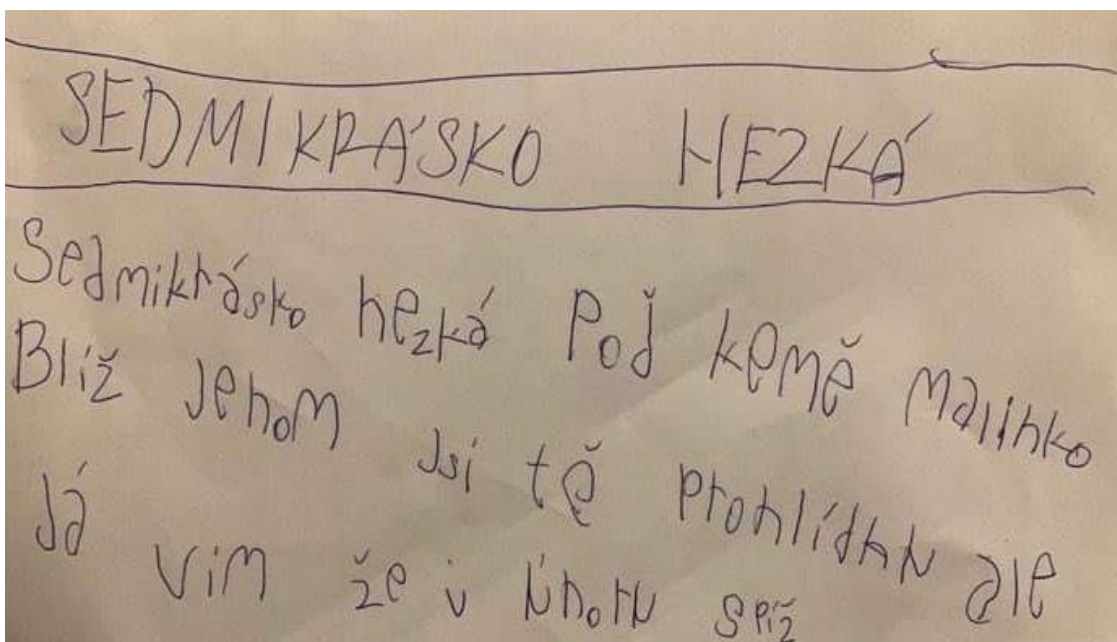 SEDMIKRÁSKO HEZKÁ
Sedmikrásko hezká Poď kemě malinko
Blíž Jenom Jsi tě prohlídnu ale
Já vim že i únoru spíž